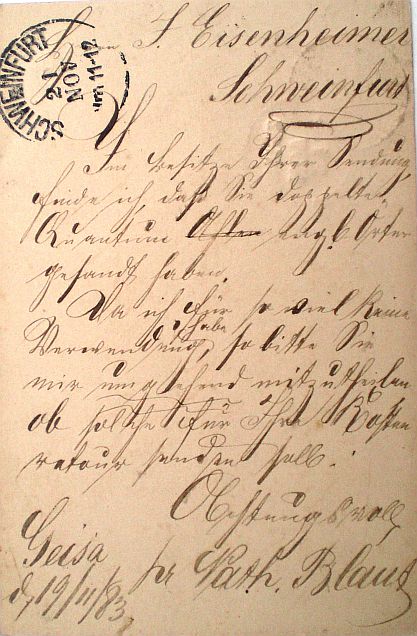 SCHWEINFURT
21
NOV
11-12
Herrn J. Eisenheimer
Schweinfurt
Im Besitze Ihrer Sendung,
finde ich, daß Sie doppeltes
Quantum
gesandt haben.
Da ich für so viel keine
Verwendung habe, so bitte Sie
mir umgehend mitzutheilen
ob solche für Ihre Kosten
retour senden soll.
Achtungsvoll
Geisa
d. 19/11/83
pr Nath. Blaut